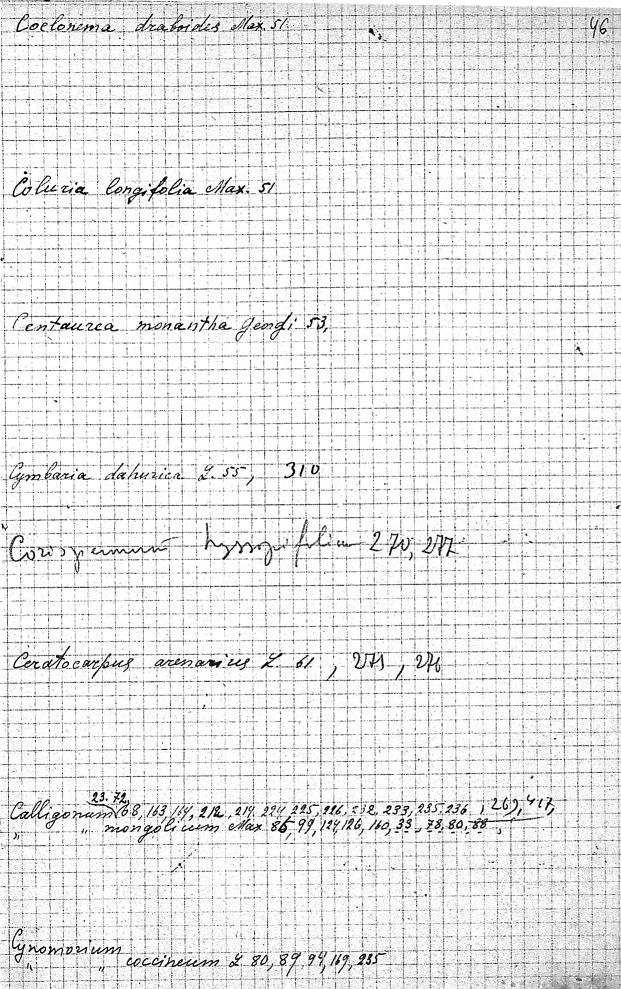 Coelonema draboides Max. 51 46
Coluria longifolia Max. 51
Centaurea monantha Georgi 53,
Cymbaria dahurica L. 55, 310
Corispermum hyssopifolium 270, 277
Ceratocarpus arenarius L. 61, 271, 276
23. 72,
Calligonum 68, 163, 164, 212, 214, 224, 225, 226, 232, 233, 235, 236, 269, 417,
" " mongolicum Max. 85, 99, 124, 126, 160, 33, 78, 80, 88,
Cynomorium
" " coccineum L 80, 89, 94, 169, 235